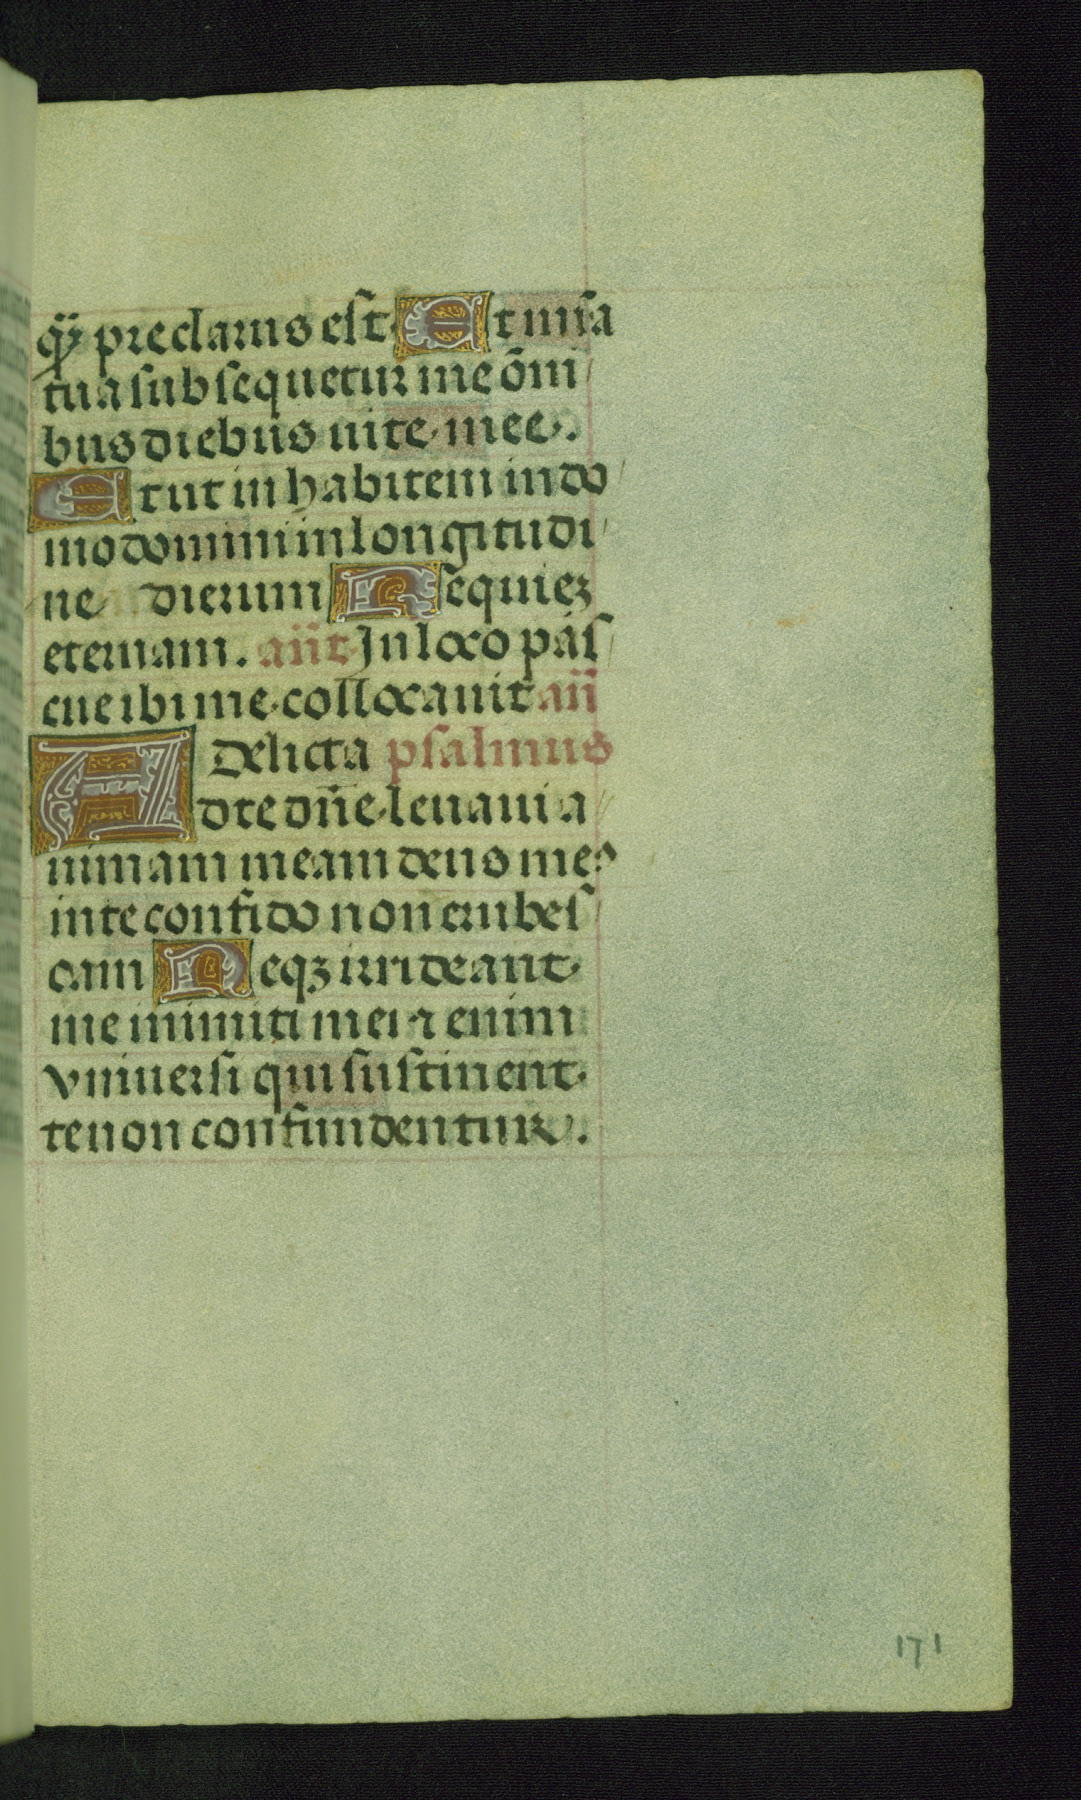 qͣ̄ preclarus est Et misa
tua subsequetur me om̄i
bus diebus uite mee.
Et ut inhabitem in do
mo domini in longitudi
ne dierum Requiez
eternam. añt In loco pas
cue ibi me collocauit añ
Delicta psalmus
Ad te dñe leuaui a
nimam meam deus meo
in te confido non erubes
cam Neqz irrideant
me inimiti mei ⁊ enim
vniuersi qui sustinent
te non confundentur.
171